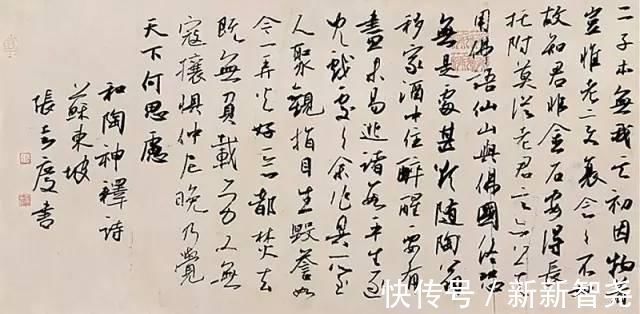 二子本無我其初因物著
豈惟老變衰念念不如
故知君非金石安得長
托附莫從老君言亦莫
用佛語仙山與佛國終恐
無是處甚欲隨陶翁
移家酒中住醉醒要有
盡未易逃諸數平生逐
兒戲處處余作具所至
人聚觀指目生毀譽如
今一弄火好惡都焚去
既無負載勞又無
寇攘懼仲尼晚乃覺
天下何思慮
和陶神釋詩
蘇東坡
張 度書
快传号 / 新新智尧